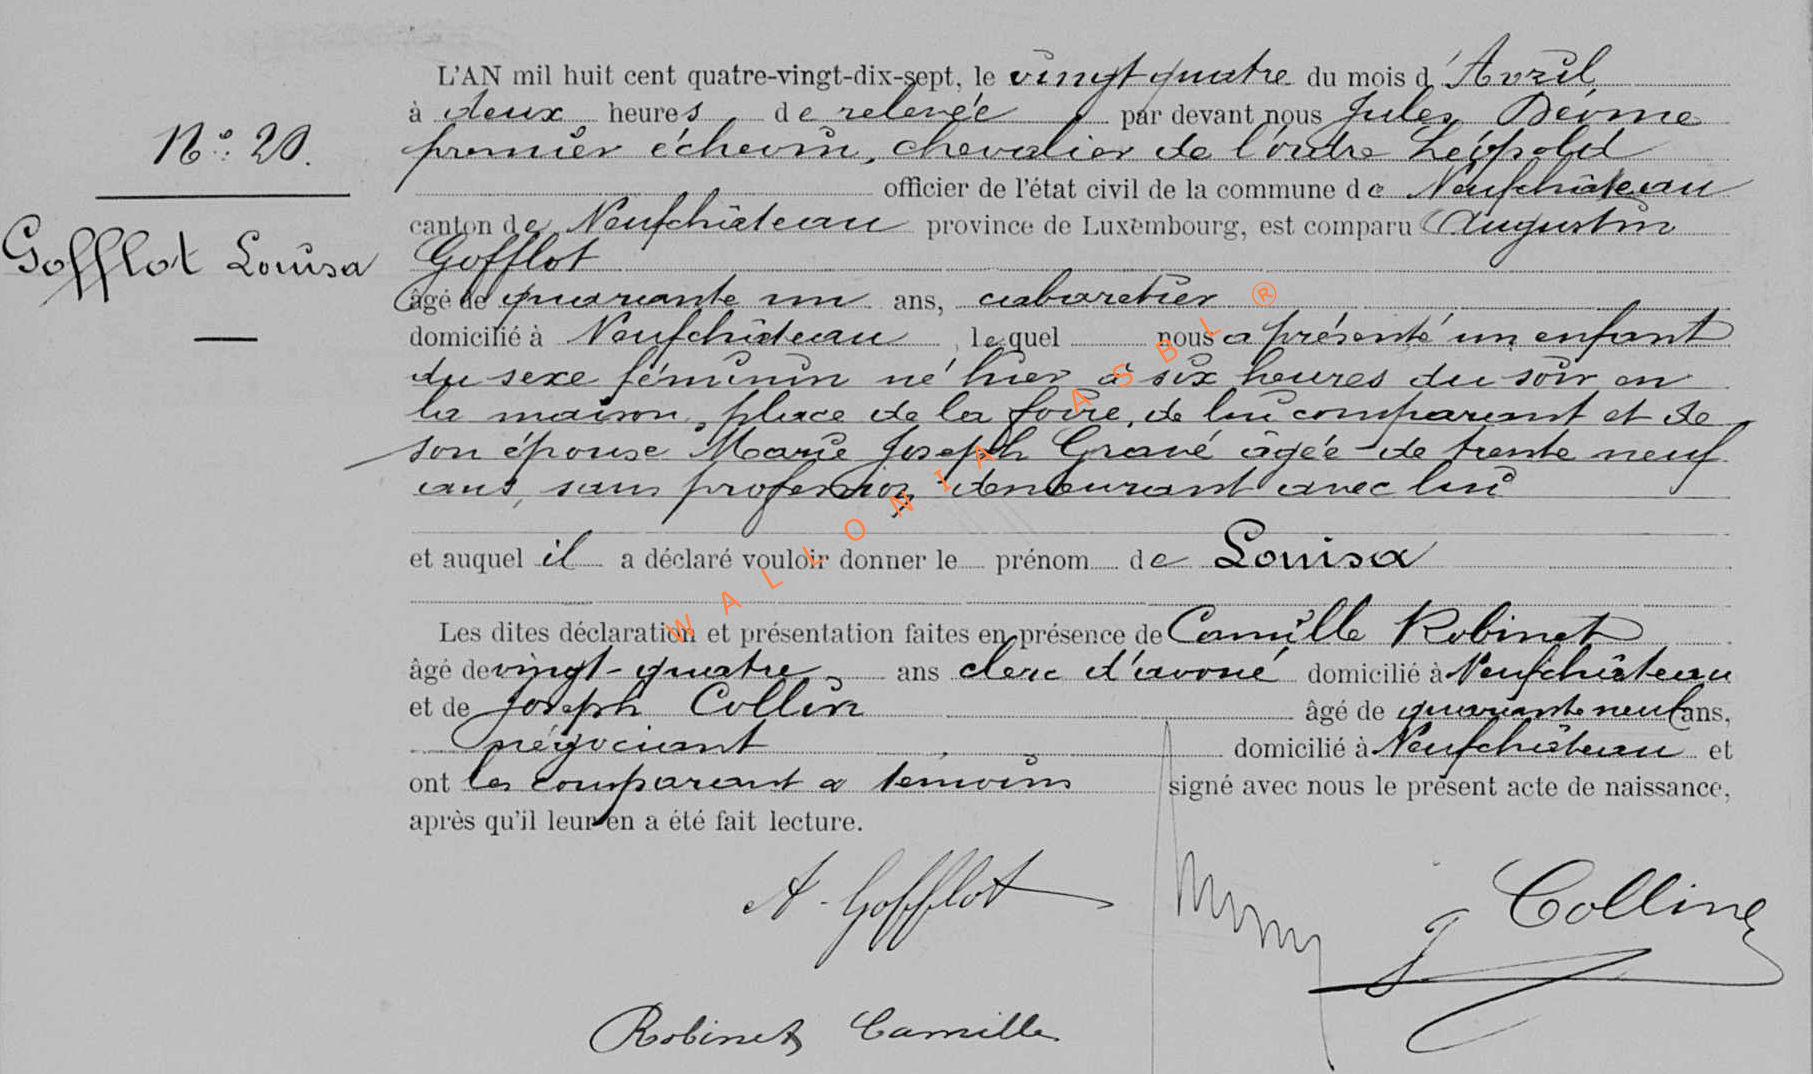 L'AN mil huit cent quatre-vingt-dix-sept, le vingt quatre du mois d'Avril
à deux heures de relevée par devant nous Jules Déome
N° 20.
premier échevin, chevalier de l'ordre Léopold
officier de l'état civil de la commune de Neufchâteau
Gofflot Louisa
canton de Neufchâteau province de Luxembourg, est comparu Augustin
Gofflot
âgé de quarante un ans, cabaretier
domicilié à Neufchâteau, lequel nous a présenté un enfant
du sexe féminin né hier à six heures du soir en
la maison, place de la foire, de lui comparant et de
son épouse Marie Joseph Gravé âgée de trente neuf
ans, sans profession demeurant avec lui
et auquel il a déclaré vouloir donner le prénom de Louisa
Les dites déclaration et présentation faites en présence de Camille Robinet
âgé de vingt-quatre ans clerc d'avoué domicilié à Neufchâteau
et de Joseph Collin âgé de quarante neuf ans,
négociant domicilié à Neufchâteau et
ont les comparant & témoins signé avec nous le présent acte de naissance,
après qu'il leur en a été fait lecture.
A. Gofflot
J Colline
Robinet Camille
WALLONIA ASBL ®